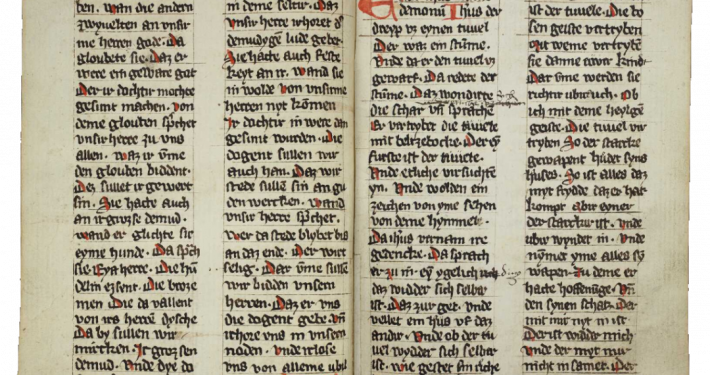 ben. Wan die andern
zwyuelten an vnsir
me herren gode. Da
gloubete sie. Daz er
were ein geware gat
Der ir dochtir mochte
gesunt machen. Von
deme glouben spchet
vnsir herre zu vns
allen. Waz ir vme
den glouben biddent.
Dez sullet ir gewert
sin. Sie hatte auch
an ir groze demud.
wand er glichte sie
eyme hunde. Da spch
sie. Eya herre. Die hu
delin ezsent. Die broze
men die da vallent
von irs herre dysche
Da by sullen wir
mircken. Ir groz sen
demud. Vnde dye do
in deme seltir. Daz
Vnsir herre irhoret d
demudygen lude gebet
Sie hatte auch feste
keyt an ir. Wand sie
in wolde von vnsirme
herren nyt kumen
Ir dochtir in were dan
gesunt wurden. Die
dogent sullen wir
auch han. Daz wir
stede sullen sin an gu
den wercken. Wand
vnsir herre spchet.
Wer da stede blybet bis
an daz ende. Der wirt
selig. Dar vme sulle
wir bidden vnsern
herren. Daz er vns
die dogent gebe. Vn
irhore vns in vnsern
noden. Vnde irlose
vns von alleme ubil
demoniu Ihus der
dreyp vz eynen tuuel
Der waz ein stume.
Vnde da er den tuuel vz
gewarf. Da redete der
stume. Daz wondirte
die schar vn sprache
Er virtrybet die tiuuele
mit belzebocke. Der ey
furste ist der tiuuele.
Vnde etliche virsuchten
yn. Vnde wolden ein
zeichen von yme sehen
von deme hymmele.
Da ihus vernam ire
gedencke. Da sprach
er zu in. Ey ygelich rich
daz widder sich selbir
ist. Daz zur get. Vnde
vellet ein hus vf daz
andir. Vnde ob der tu
uel wydder sich selbir
ist. Wie gestet sin riche
ist der tuuele. Die bo
sen geiste virtryben
vz weme virtrybet
sie danne uwer kindir
Dar vme werden sie
richtir ubir uch. Ob
ich mit deme heylgen
geiste. Die tuuel vir
tryben. So der starcke
gewapent hudet syns
huses. So ist alles daz
myt frydde daz er hat
kompt abir eyner
der starckir ist. Vnde
ubir wyndet in. Vnde
nymet yme alles syn
wapen. Zu deme er
hatte hoffenunge. Vn
den synen schatz. Der
mit mir nyt in ist
Der ist widdir mich
Vnde der myt mir
nicht in samet. Der